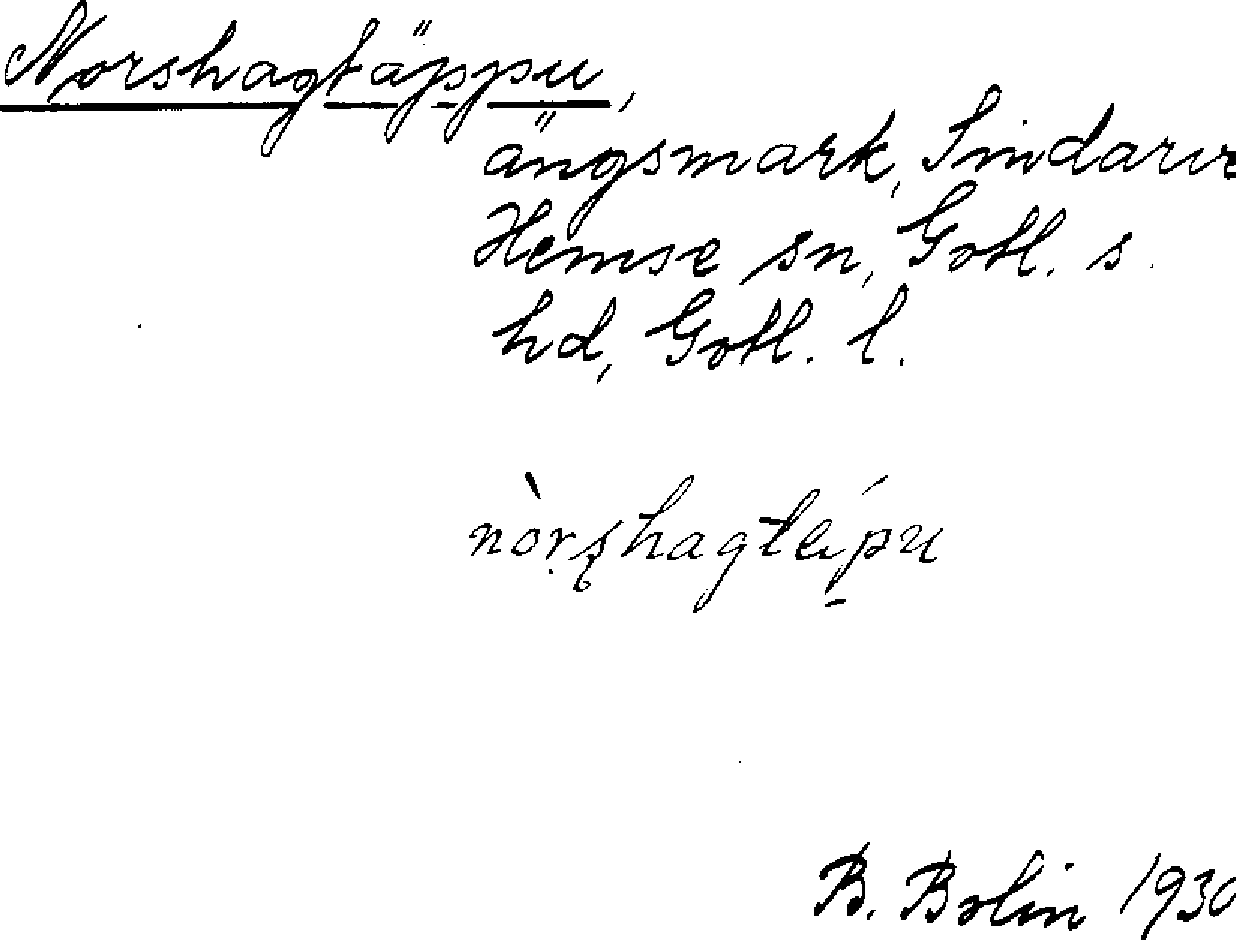 Norshagtäppu,
ängsmark, Sindarve
Hemse sn, Gotl. s.
hd, Gotl. l.
B. Bolin 1930